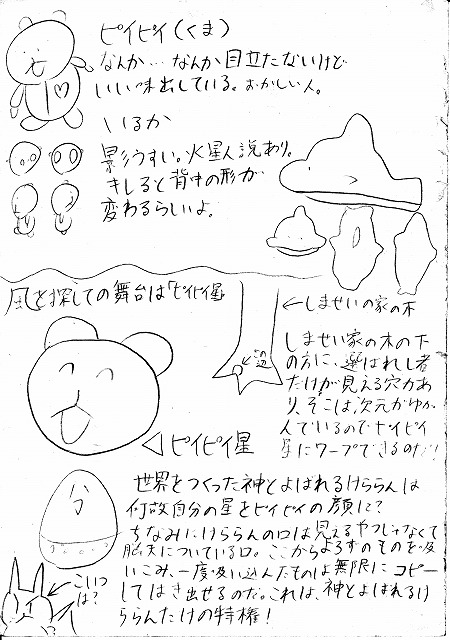 ピイピイ(くま)
なんか…なんか目立たないけど
いい味出している。おかしい人。
いるか
影うすい。火星人説あり。
キレると背中の形が
変わるらしいよ。
風を探しての舞台は「ピイピイ星」
←しませいの家の木
この辺
しませい家の木の下
の方に、選ばれし者
だけが見える穴があ
り、そこは、次元がゆが
んでいるのでピイピイ
星にワープできるのだ!
◁ピイピイ星
世界をつくった神とよばれるけららんは
何故自分の星をピイピイの顔に?
ちなみにけららんの口は見えるやつじゃなくて
脳天についている口。ここからよろずのものを吸
いこみ、一度吸い込んだものは無限にコピー
してはき出せるのだ。これは、神とよばれるけ
ららんだけの特権!
分
←こいつ
は?